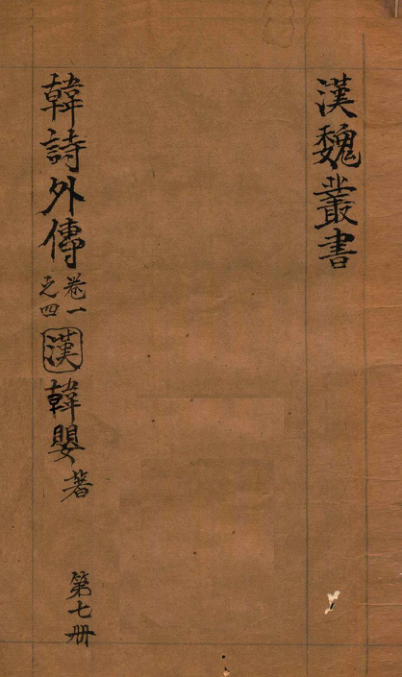 漢魏叢書
韓詩外傳 卷一之四 漢 韓嬰著 第七冊